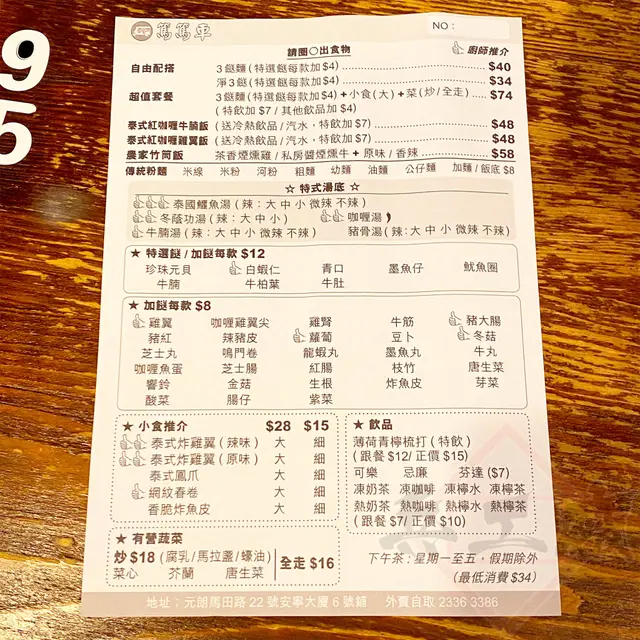 9
5
篤篤車
NO：
請圈○出食物
廚師推介
自由配搭 3餸麵(特選餸每款加$4) $40
淨3餸(特選餸每款加$4) $34
超值套餐 3餸麵(特選餸每款加$4)+小食(大)+菜(炒/全走) $74
(特飲加$7/其他飲品加$4)
泰式紅咖喱牛腩飯 (送冷熱飲品/汽水，特飲加$7) $48
泰式紅咖喱雞翼飯 (送冷熱飲品/汽水，特飲加$7) $48
農家竹筒飯 茶香煙燻雞/私房醬煙燻牛+原味/香辣 $58
傳統粉麵 米線 米粉 河粉 粗麵 幼麵 油麵 公仔麵 加麵/飯底 $8
☆ 特式湯底 ☆
泰國鱷魚湯(辣：大 中 小 微辣 不辣)
冬蔭功湯(辣：大 中 小) 咖喱湯
牛腩湯(辣：大 中 小 微辣 不辣) 豬骨湯(辣：大 中 小 微辣 不辣)
★ 特選餸/加餸每款 $12
珍珠元貝 白蝦仁 青口 墨魚仔 魷魚圈
牛腩 牛柏葉 牛肚
★ 加餸每款 $8
雞翼 咖喱雞翼尖 雞腎 牛筋 豬大腸
豬紅 辣豬皮 蘿蔔 豆卜 冬菇
芝士丸 鳴門卷 龍蝦丸 墨魚丸 牛丸
咖喱魚蛋 芝士腸 紅腸 枝竹 唐生菜
響鈴 金菇 生根 炸魚皮 芽菜
酸菜 腸仔 紫菜
★ 小食推介 $28 $15
泰式炸雞翼(辣味) 大 細
泰式炸雞翼(原味) 大 細
泰式鳳爪 大 細
網紋春卷 大 細
香脆炸魚皮 大 細
★ 有營蔬菜
炒 $18 (腐乳/馬拉盞/蠔油) 全走 $16
菜心 芥蘭 唐生菜
★ 飲品
薄荷青檸梳打(特飲)
(跟餐 $12/ 正價 $15)
可樂 忌廉 芬達 ($7)
凍奶茶 凍咖啡 凍檸水 凍檸茶
熱奶茶 熱咖啡 熱檸水 熱檸茶
(跟餐 $7/ 正價 $10)
下午茶：星期一至五，假期除外
(最低消費 $34)
地址：元朗馬田路22號安寧大廈6號鋪 外賣自取 2336 3386